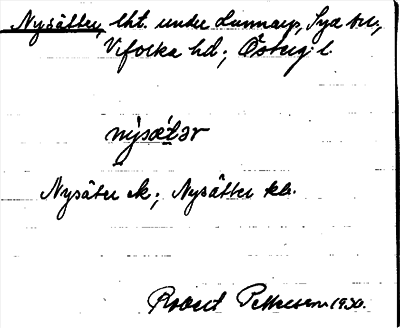 Nysätter, lht. under Lunnarp, Sya sn.,
Vifolka hd; Östergl.
nýsæ̀tər
Nysäter ek; Nysätter kb.
Robert Pettersson 1930.